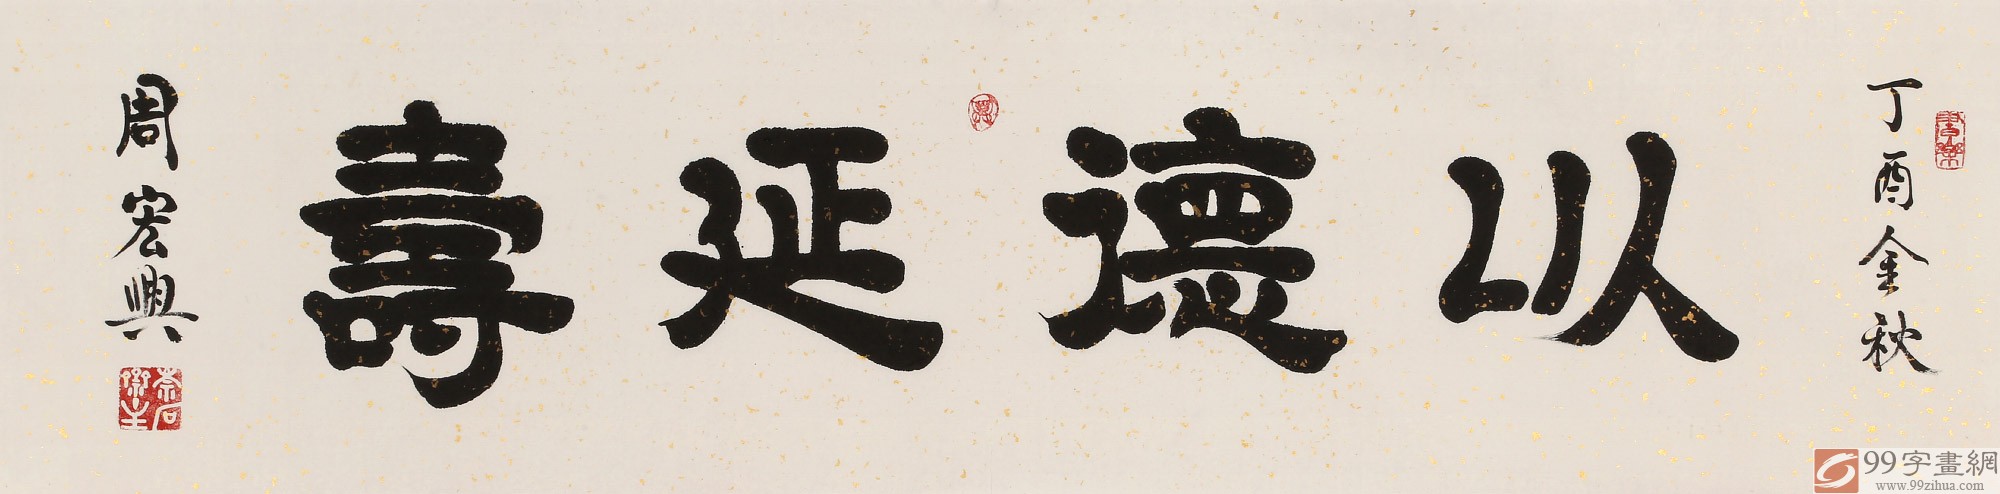 丁酉金秋
以德延壽
周宏興
99字畫網
www.99zihua.com